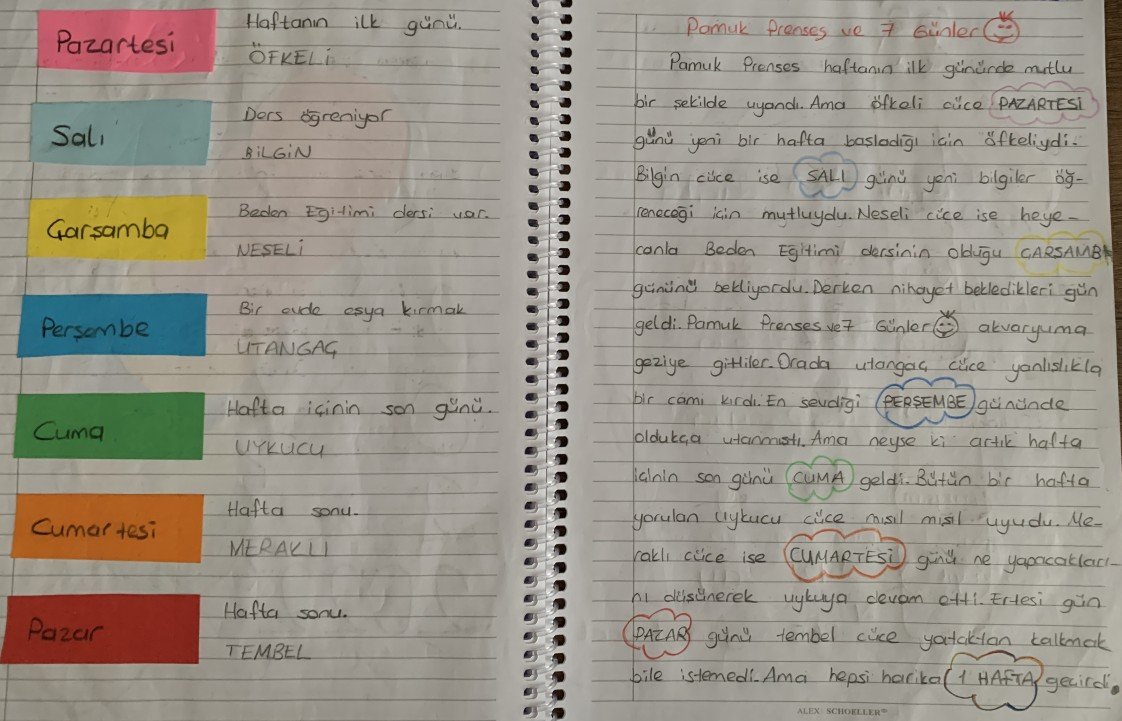 Pazartesi
Haftanın ilk günü.
ÖFKELİ
Salı
Ders öğreniyor
BİLGİN
Çarşamba
Beden Eğitimi dersi var.
NEŞELİ
Perşembe
Bir evde eşya kırmak
UTANGAÇ
Cuma
Hafta içinin son günü.
UYKUCU
Cumartesi
Hafta sonu.
MERAKLI
Pazar
Hafta sonu.
TEMBEL
Pamuk Prenses ve 7 Günler
Pamuk Prenses haftanın ilk gününde mutlu
bir şekilde uyandı. Ama öfkeli cüce PAZARTESİ
günü yeni bir hafta başladığı için öfkeliydi.
Bilgin cüce ise SALI günü yeni bilgiler öğ-
reneceği için mutluydu. Neşeli cüce ise heye-
canla Beden Eğitimi dersinin olduğu ÇARŞAMBA
gününü bekliyordu. Derken nihayet bekledikleri gün
geldi. Pamuk Prenses ve 7 Günler akvaryuma
geziye gittiler. Orada utangaç cüce yanlışlıkla
bir camı kırdı. En sevdiği PERŞEMBE gününde
oldukça utanmıştı. Ama neyse ki artık hafta
içinin son günü CUMA geldi. Bütün bir hafta
yorulan Uykucu cüce mışıl mışıl uyudu. Me-
raklı cüce ise CUMARTESİ günü ne yapacakları-
nı düşünerek uykuya devam etti. Ertesi gün
PAZAR günü tembel cüce yataktan kalkmak
bile istemedi. Ama hepsi harika 1 HAFTA geçirdi.
ALEX SCHOELLER®